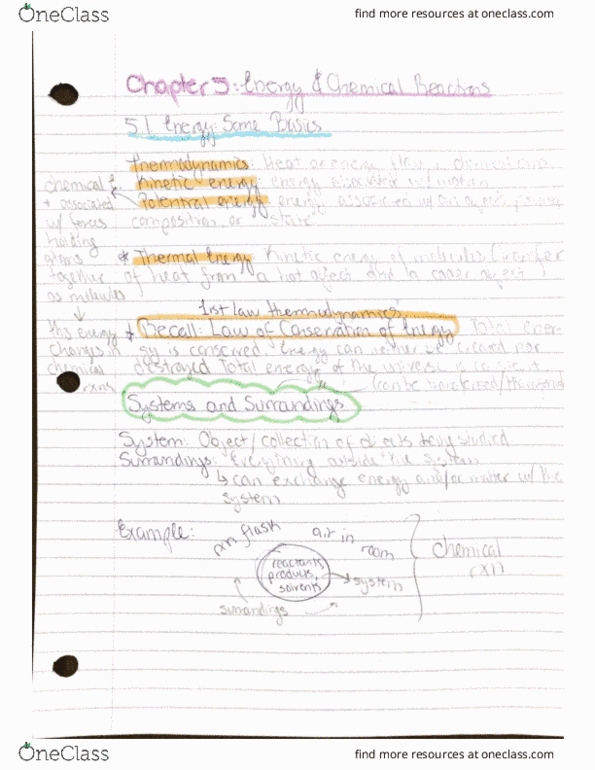 OneClass
find more resources at oneclass.com
Chapter 5: Energy & Chemical Reactions
5.1 Energy: Some Basics
Thermodynamics: Heat or energy flow chemical
Kinetic energy: energy associated w/ motion
Potential energy energy associated w/ an object's
composition or "state"
chemical
+ associated
w/ forces
holding
atoms
together
as molecules
↓
this energy
changes in
chemical
rxns
* Thermal Energy Kinetic energy of molecules (transfer
of heat from a hot object and a cooler object)
1st law thermodynamics
* Recall: Law of Conservation of Energy Total ener-
gy is conserved. Energy can neither be created nor
destroyed Total energy of the universe is
(can be transferred/
Systems and Surroundings
System: Object/collection of objects being studied
Surroundings: Everything outside the system
↳ can exchange energy and/or matter w/ the
system
Example:
rxn flask
air in
room
reactants,
products,
solvents
system
surroundings
chemical
rxn
OneClass
find more resources at oneclass.com